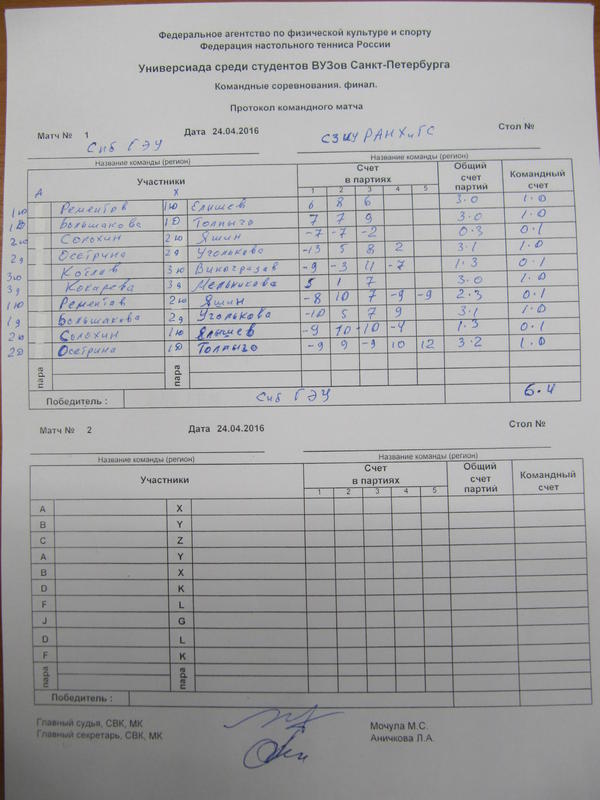 Федеральное агентство по физической культуре и спорту
Федерация настольного тенниса России
Универсиада среди студентов ВУЗов Санкт-Петербурга
Командные соревнования. финал.
Протокол командного матча
Матч № 1 Дата 24.04.2016 Стол №
Спб ГЭУ СЗИУ РАНХиГС
Название команды (регион) Название команды (регион)
Участники Счет в партиях Общий счет партий Командный счет
А Х 1 2 3 4 5
1ю Рементов 1ю Елишев 6 8 6 3.0 1.0
1D Большакова 1D Толпыго 7 7 9 3.0 1.0
2ю Солохин 2ю Яшин -7 -7 -2 0.3 0.1
2д Осетрина 2д Уголькова -13 5 8 2 3.1 1.0
3ю Котлов 3ю Виноградов -9 -3 11 -7 1.3 0.1
3д Кокарева 3д Мельникова 5 1 7 3.0 1.0
1ю Рементов 2ю Яшин -8 10 7 -9 -9 2.3 0.1
1д Большакова 2д Уголькова -10 5 7 9 3.1 1.0
2ю Солохин 1ю Елышев -9 10 -10 -4 1.3 0.1
2D Осетрина 1D Толпыго -9 9 -9 10 12 3.2 1.0
пара пара
Победитель : Спб ГЭУ 6.4
Матч № 2 Дата 24.04.2016 Стол №
Название команды (регион) Название команды (регион)
Участники Счет в партиях Общий счет партий Командный счет
1 2 3 4 5
A X
B Y
C Z
A Y
B X
D K
F L
J G
D L
F K
пара пара
Победитель :
Главный судья, СВК, МК Мочула М.С.
Главный секретарь, СВК, МК Аничкова Л.А.